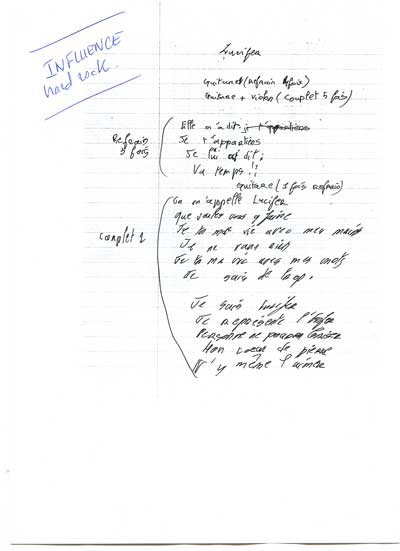 INFLUENCE
hard rock.
Lucifer
guitare (Refrain fois)
guitare + violon (couplet 5 fois)
Refrain
3 fois
Elle m'a dit:
Je t'appartiens
Je lui ai dit:
Va temps!!
guitare (1 fois refrain)
Couplet 1
On m'appelle Lucifer
que voulez vous y faire
Je ta vie avec mes mains
Je ne rien
Je ta ma vie avec mes mots
Je suis de
Je suis Lucifer
Je représente l'Enfer
Personne ne pourra
Mon cœur de pierre
même l'aimer